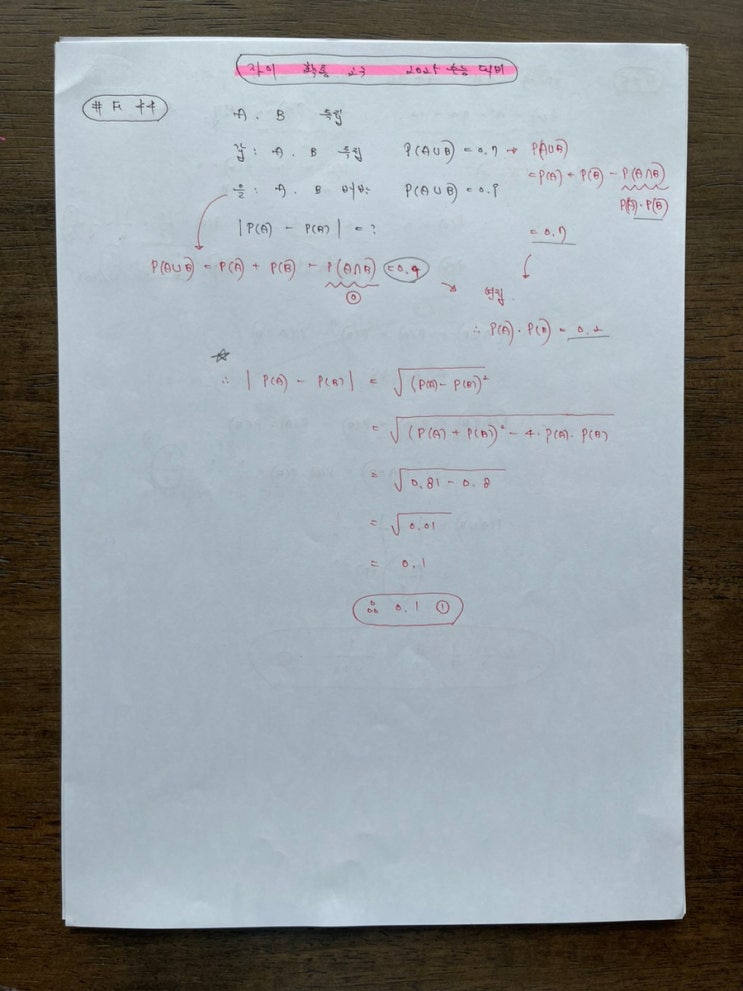 자이 확통 2권 2025 수능 대비
# F 44
A, B 독립
갑: A, B 독립 P(A∪B) = 0.7 → P(A∪B)
= P(A) + P(B) - P(A∩B)
P(A)·P(B)
= 0.7
을: A, B P(A∪B) = 0.9
|P(A) - P(B)| = ?
P(A∪B) = P(A) + P(B) - P(A∩B) = 0.9
0
연립.
∴ P(A)·P(B) = 0.2
☆
∴ |P(A) - P(B)| = √(P(A) - P(B))²
= √(P(A) + P(B))² - 4·P(A)·P(B)
= √0.81 - 0.8
= √0.01
= 0.1
∴ 0.1 ①